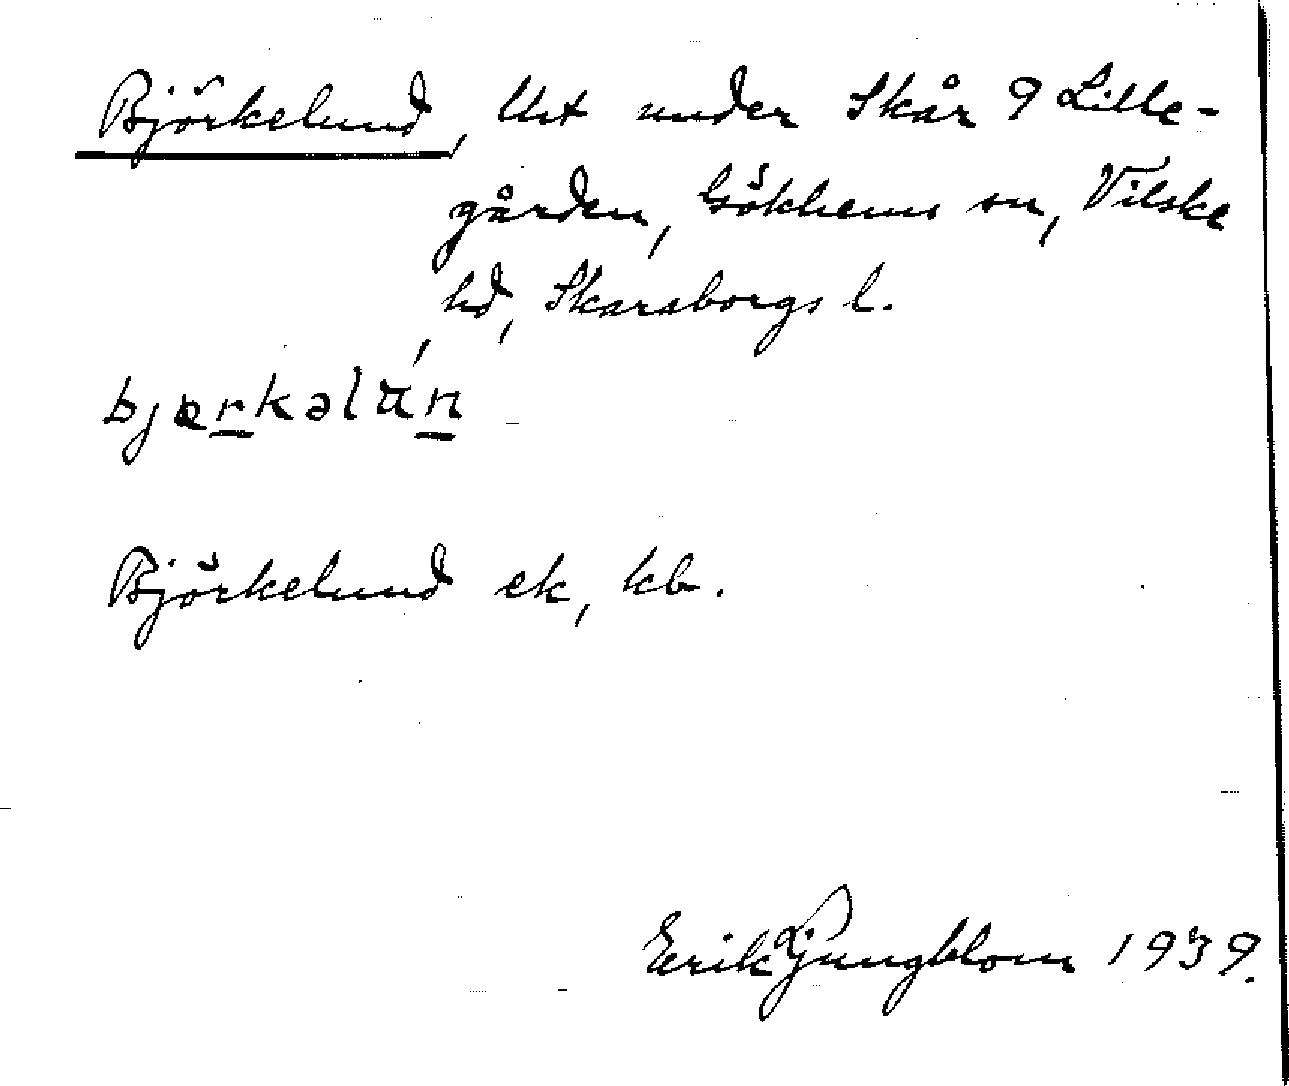 Björkelund, Urt under Skår 9 Lille-
gården, Gökhems sn, Vilske
hd, Skaraborgs l.
bjærkəlún
Björkelund ek, kb.
Erik Ljungblom 1939.